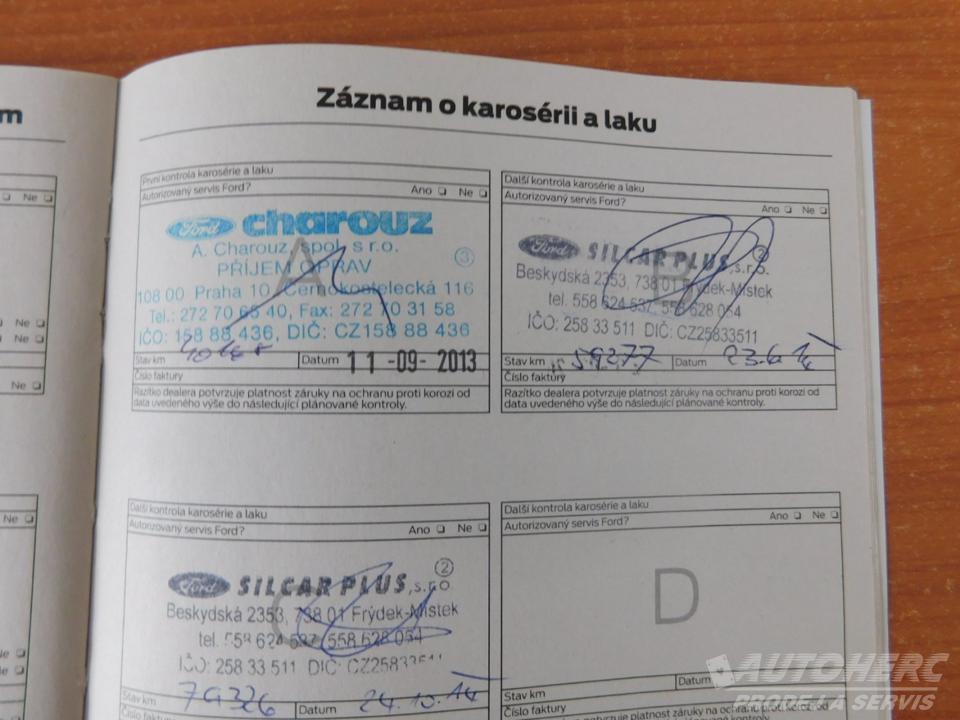 m
Záznam o karosérii a laku
Ne
Ne
Ne
Ne
Ne
První kontrola karosérie a laku
Autorizovaný servis Ford? Ano Ne
Ford charouz
A. Charouz, spol. s r.o. 3
PŘÍJEM OPRAV
A
108 00 Praha 10, Černokostelecká 116
Tel.: 272 70 65 40, Fax: 272 70 31 58
IČO: 158 88 436, DIČ: CZ158 88 436
Stav km Datum 11-09-2013
Číslo faktury
Razítko dealera potvrzuje platnost záruky na ochranu proti korozi od
data uvedeného výše do následující plánované kontroly.
Další kontrola karosérie a laku
Autorizovaný servis Ford? Ano Ne
Ford SILCAR PLUS,s.r.o. 2
B
Beskydská 2353, 738 01 Frýdek-Místek
tel. 558 624 537, 558 628 054
IČO: 258 33 511 DIČ: CZ25833511
Stav km 59277 Datum 23.6.14
Číslo faktury
Razítko dealera potvrzuje platnost záruky na ochranu proti korozi od
data uvedeného výše do následující plánované kontroly.
Další kontrola karosérie a laku
Autorizovaný servis Ford? Ano Ne
2
Ford SILCAR PLUS,s.r.o.
Beskydská 2353, 738 01 Frýdek-Místek
C
tel. 558 624 537, 558 628 054
IČO: 258 33 511 DIČ: CZ25833511
Stav km 79326 Datum 24.10.14
Číslo faktury
Další kontrola karosérie a laku
Autorizovaný servis Ford? Ano Ne
D
Stav km Datum
Číslo faktury
Razítko dealera potvrzuje platnost záruky na ochranu proti korozi od
AUTOHERC
PRODEJ A SERVIS